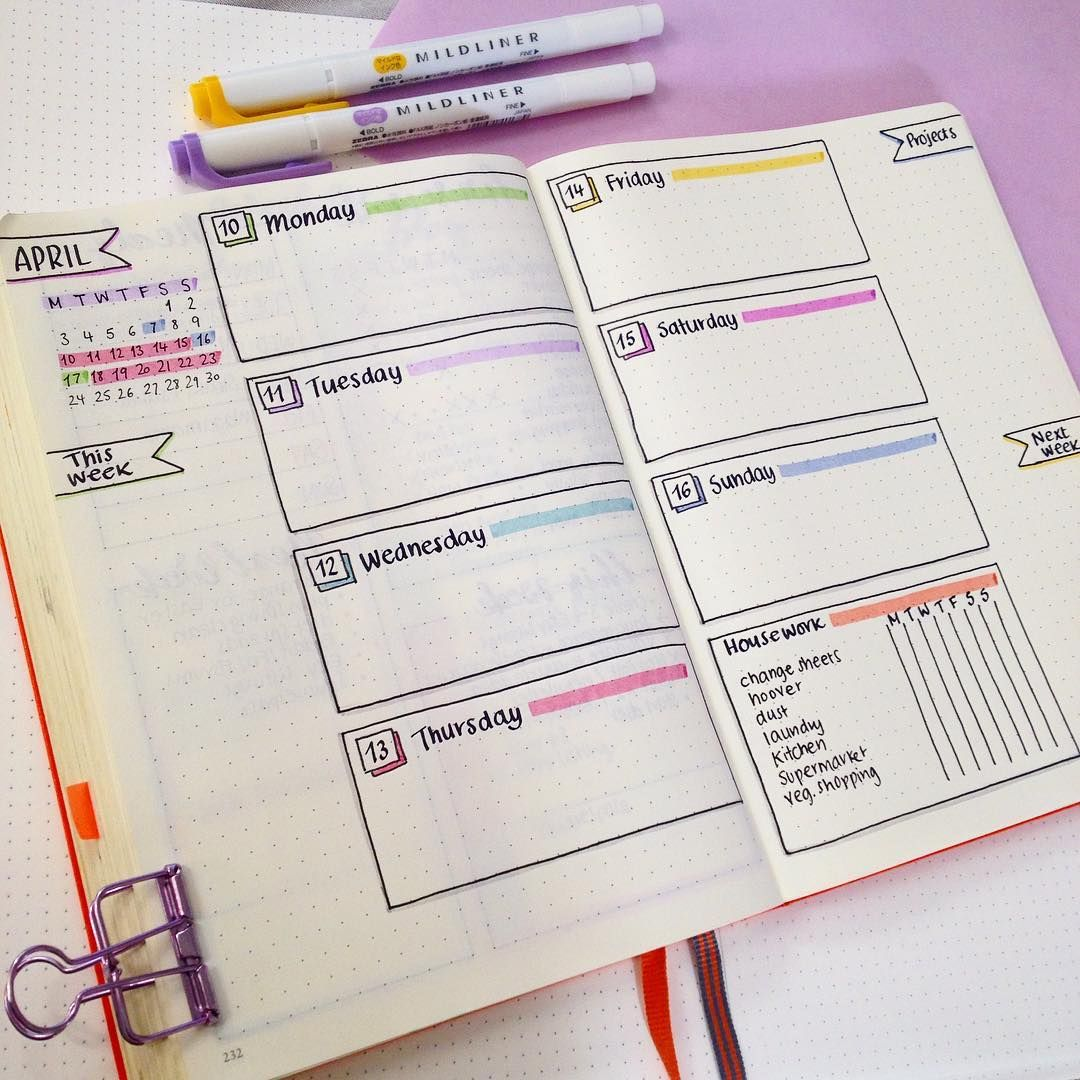 マイルドな
インク色
MILDLINER
FINE▶
◀BOLD
MILDLINER
FINE▶
JAPAN
◀BOLD
ZEBRA
APRIL
M T W T F S S
1 2
3 4 5 6 7 8 9
10 11 12 13 14 15 16
17 18 19 20 21 22 23
24 25 26 27 28 29 30
This
week
10 Monday
11 Tuesday
12 Wednesday
13 Thursday
232
Projects
14 Friday
15 Saturday
16 Sunday
Next
week
Housework
M T W T F S S
change sheets
hoover
dust
laundry
Kitchen
Supermarket
veg. shopping